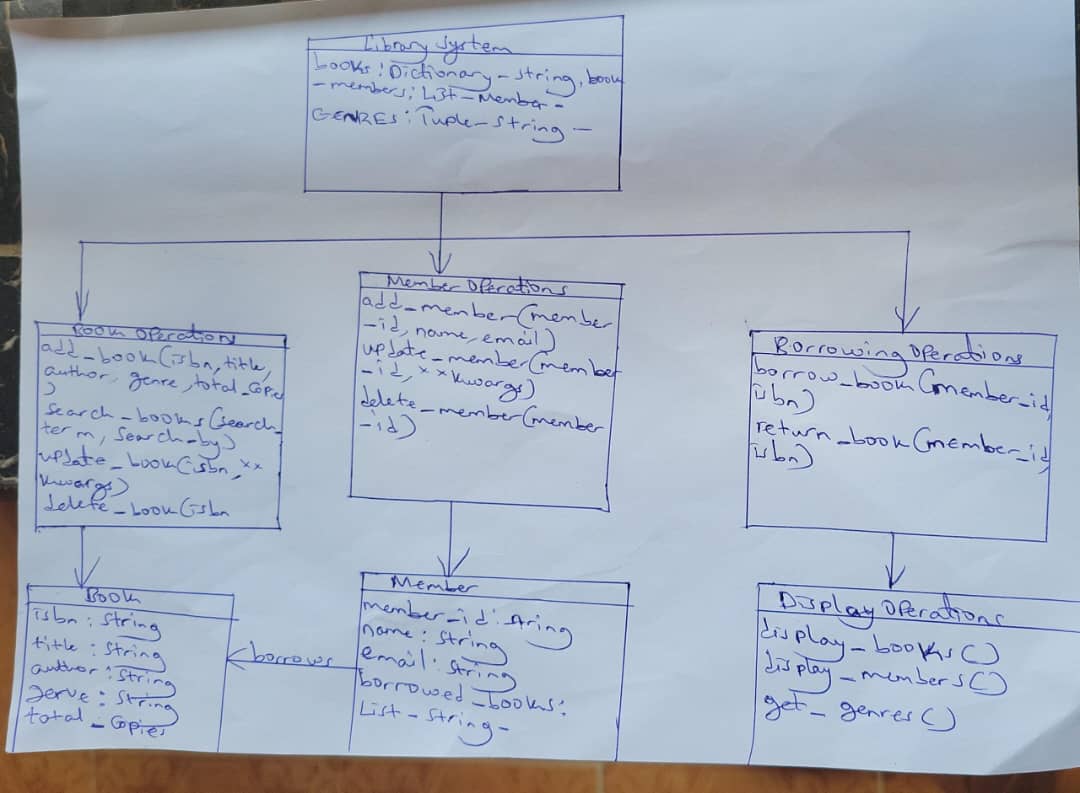 Library System
books : Dictionary - String, book
- members : List - Member -
GENRES : Tuple - String -
Book Operations
add_book(isbn, title,
author, genre, total_Copies
)
search_books(search_
term, search_by)
update_book(isbn, **
kwargs)
delete_book(isbn
Member Operations
add_member(member
_id, name, email)
update_member(member
_id, **kwargs)
delete_member(member
_id)
Borrowing Operations
borrow_book(member_id,
isbn)
return_book(member_id,
isbn)
Book
isbn : String
title : String
author : String
genre : String
total_Copies
borrows
Member
member_id : String
name : String
email : String
borrowed_books :
List - String -
Display Operations
display_books()
display_members()
get_genres()